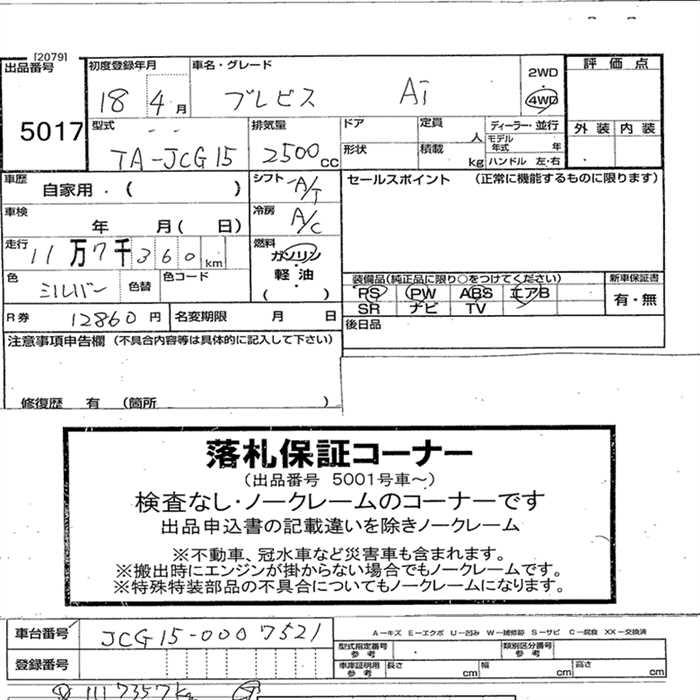 [2079]
出品番号 初度登録年月 車名・グレード 2WD 評価点
5017 18 4月 ブレビス Ai 4WD
型式 排気量 ドア 定員 人 ディーラー・並行 外装 内装
モデル年式 年
TA-JCG15 2500cc 形状 積載 kg ハンドル 左・右
車歴 自家用・( ) シフト A/T セールスポイント (正常に機能するものに限ります)
車検 年 月( 日) 冷房 A/C
走行 11万7千360km 燃料 ガソリン
軽・油
( )
色 シルバー 色替 色コード
装備品(純正品に限り○をつけてください) 新車保証書
PS PW ABS エアB 有・無
R券 12860円 名変期限 月 日 SR ナビ TV
後日品
注意事項申告欄 (不具合内容等は具体的に記入して下さい)
修復歴 有 (箇所 )
落札保証コーナー
(出品番号 5001号車~)
検査なし・ノークレームのコーナーです
出品申込書の記載違いを除きノークレーム
※不動車、冠水車など災害車も含まれます。
※搬出時にエンジンが掛からない場合でもノークレームです。
※特殊特装部品の不具合についてもノークレームになります。
車台番号 JCG15-0007521 A-キズ E-エクボ U-凹み W-補修跡 S-サビ C-腐食 XX-交換済
型式指定番号 参考 類別区分番号 参考
登録番号 車庫証明用 参考 長さ cm 幅 cm 高さ cm
117357km